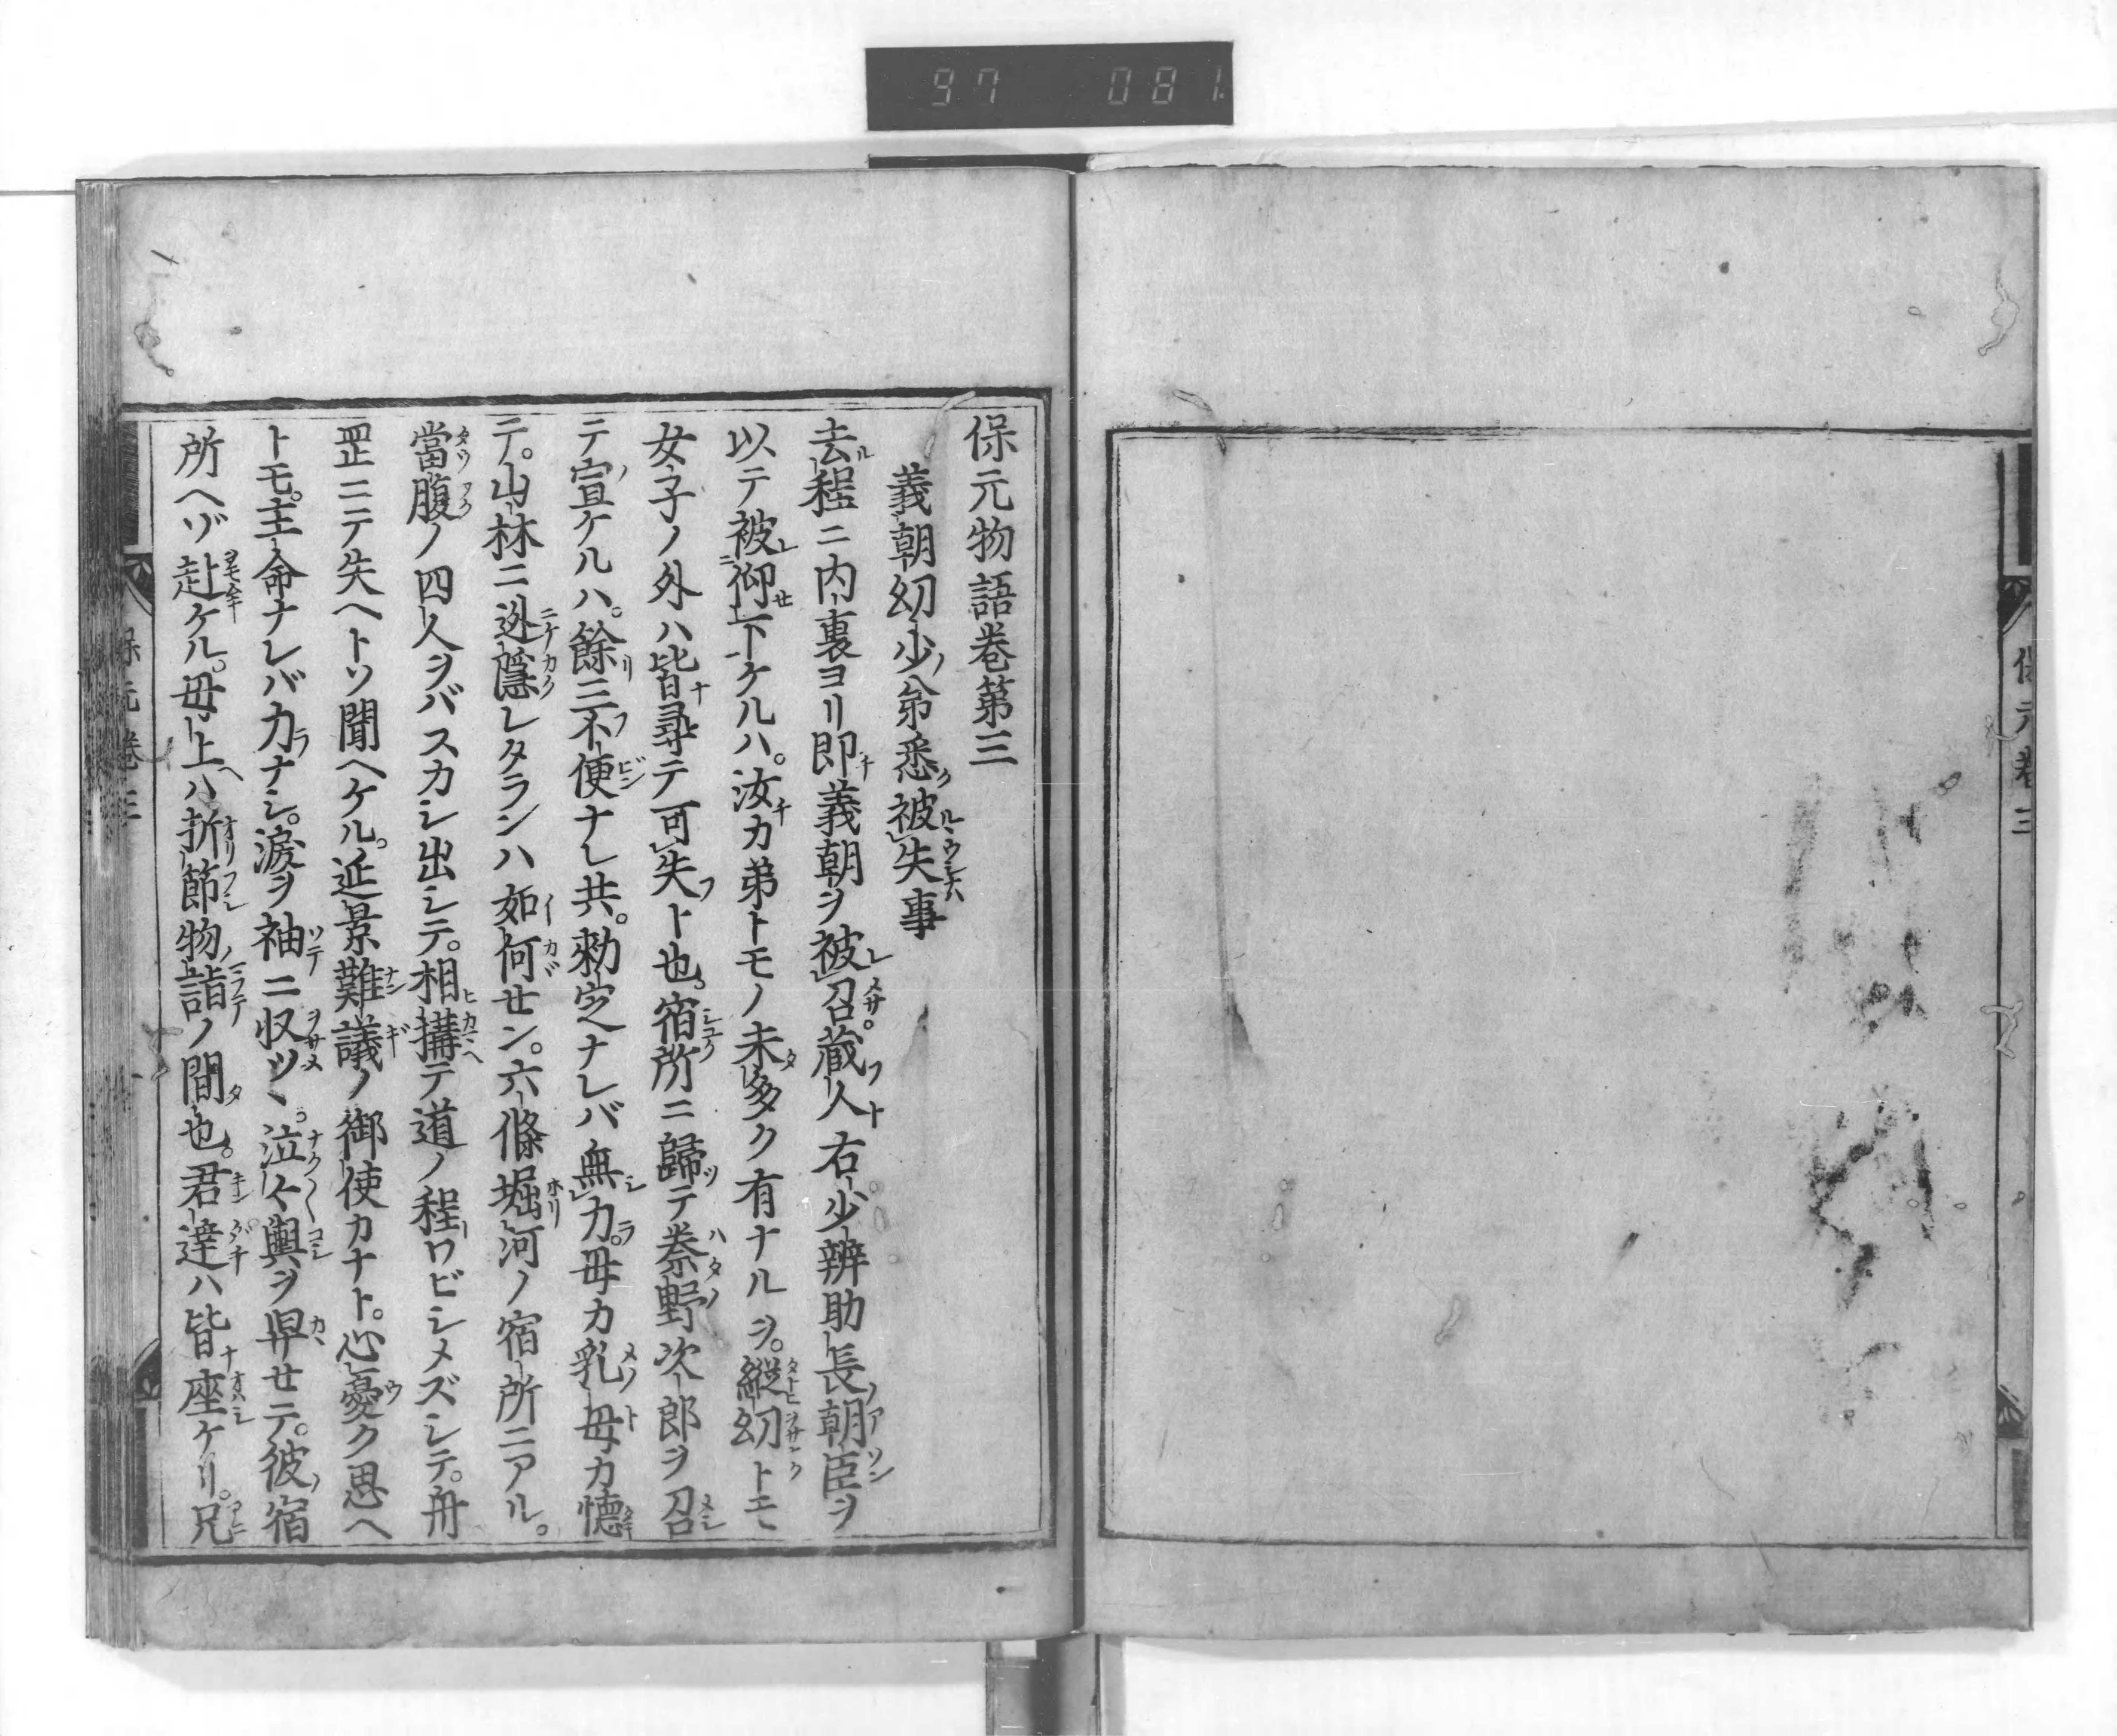 97 081
保元物語巻第三
義朝幼少ノ弟悉ク被失事
去程ニ内裏ヨリ即義朝ヲ被召。蔵人右少辨助長朝臣ヲ
以テ被仰下ケルハ。汝カ弟トモノ未多ク有ナルヲ。縦幼トモ
女子ノ外ハ皆尋テ可失ト也。宿所ニ歸テ㮈野次郎ヲ召
テ宣ケルハ。餘ニ不便ナレ共。勅定ナレバ無力。母カ乳母カ懐
テ。山林ニ迯隠レタランハ如何セン。六條堀河ノ宿所ニアル。
當腹ノ四人ヲバスカシ出シテ。相搆テ道ノ程ワビシメズシテ。舟
罡ニテ失ヘトソ聞ヘケル。延景難議ノ御使カナト。心憂ク思ヘ
トモ。主命ナレバ力ナシ。涙ヲ袖ニ収ツヽ。泣々輿ヲ舁セテ。彼宿
所ヘゾ赴ケル。母上ハ折節物詣ノ間也。君達ハ皆座ケリ。兄
保元巻三